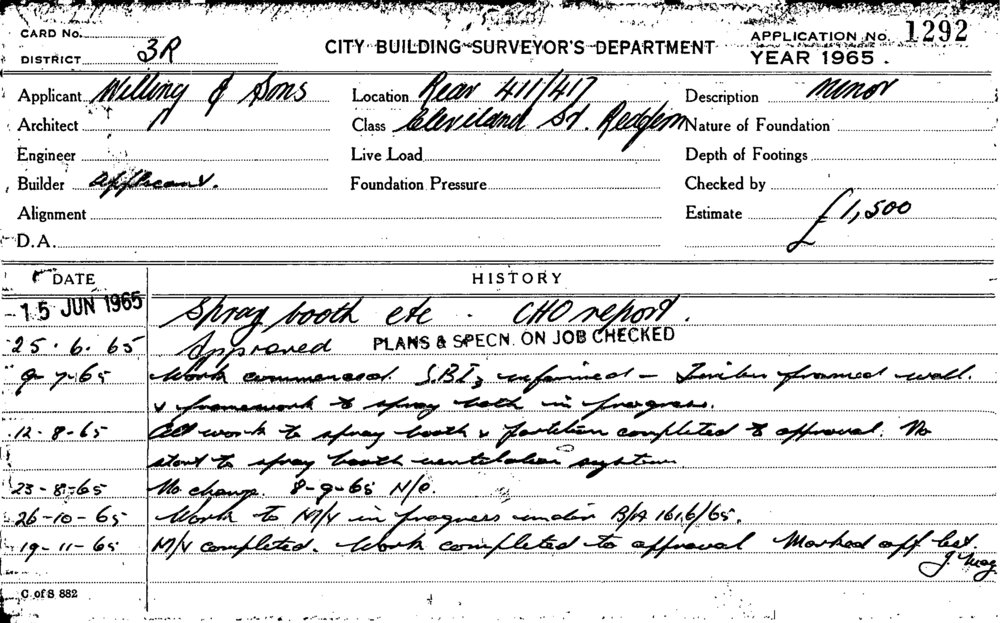 CARD No.
CITY BUILDING SURVEYOR'S DEPARTMENT
APPLICATION No. 1292
DISTRICT 3R
YEAR 1965.
Applicant Willing & Sons Location Rear 411/417 Description Minor
Architect Class Cleveland St. Redfern Nature of Foundation
Engineer Live Load Depth of Footings
Builder Applicant. Foundation Pressure Checked by
Alignment Estimate £1,500
D.A.
DATE HISTORY
15 JUN 1965 Spray booth etc. CHO report.
25.6.65 Approved PLANS & SPECN. ON JOB CHECKED
9-7-65 Work commenced. S.B.I. informed - Timber framed wall.
& framework to spray booth in progress.
12-8-65 All work to spray booth & partition completed to approval. No
start to spray booth ventilation system
23-8-65 No change. 8-9-65 N/C.
26-10-65 Work to M/V in progress under B/A 1616/65.
19-11-65 M/V completed. Work completed to approval Marked off list.
C of S 882